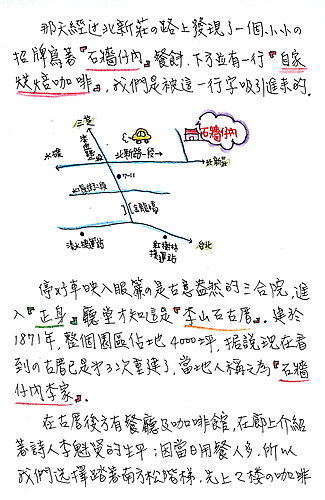 那天經過北新莊の路上發現了一個小小の
招牌寫著『石牆仔內』餐館.下方並有一行『自家
烘焙咖啡』,我們是被這一行字吸引進來的.
三芝
石牆仔內
北新路一段→
北新莊
7-11
台北
淡水捷運站
紅樹林
捷運站
停好車映入眼簾の是古意盎然的三合院,進
入『正身』聽堂才知這是『李山石古厝』.建於
1871年,整個園區佔地4000坪,據說現在看
到の古厝已是第3次重建了,當地人稱之為『石牆
仔內李家』.
在古厝後方有餐廳及咖啡館,在廊上介紹
著詩人李魁賢的生平;因當日用餐人多,所以
我們選擇踏著南方松階梯.先上2樓の咖啡